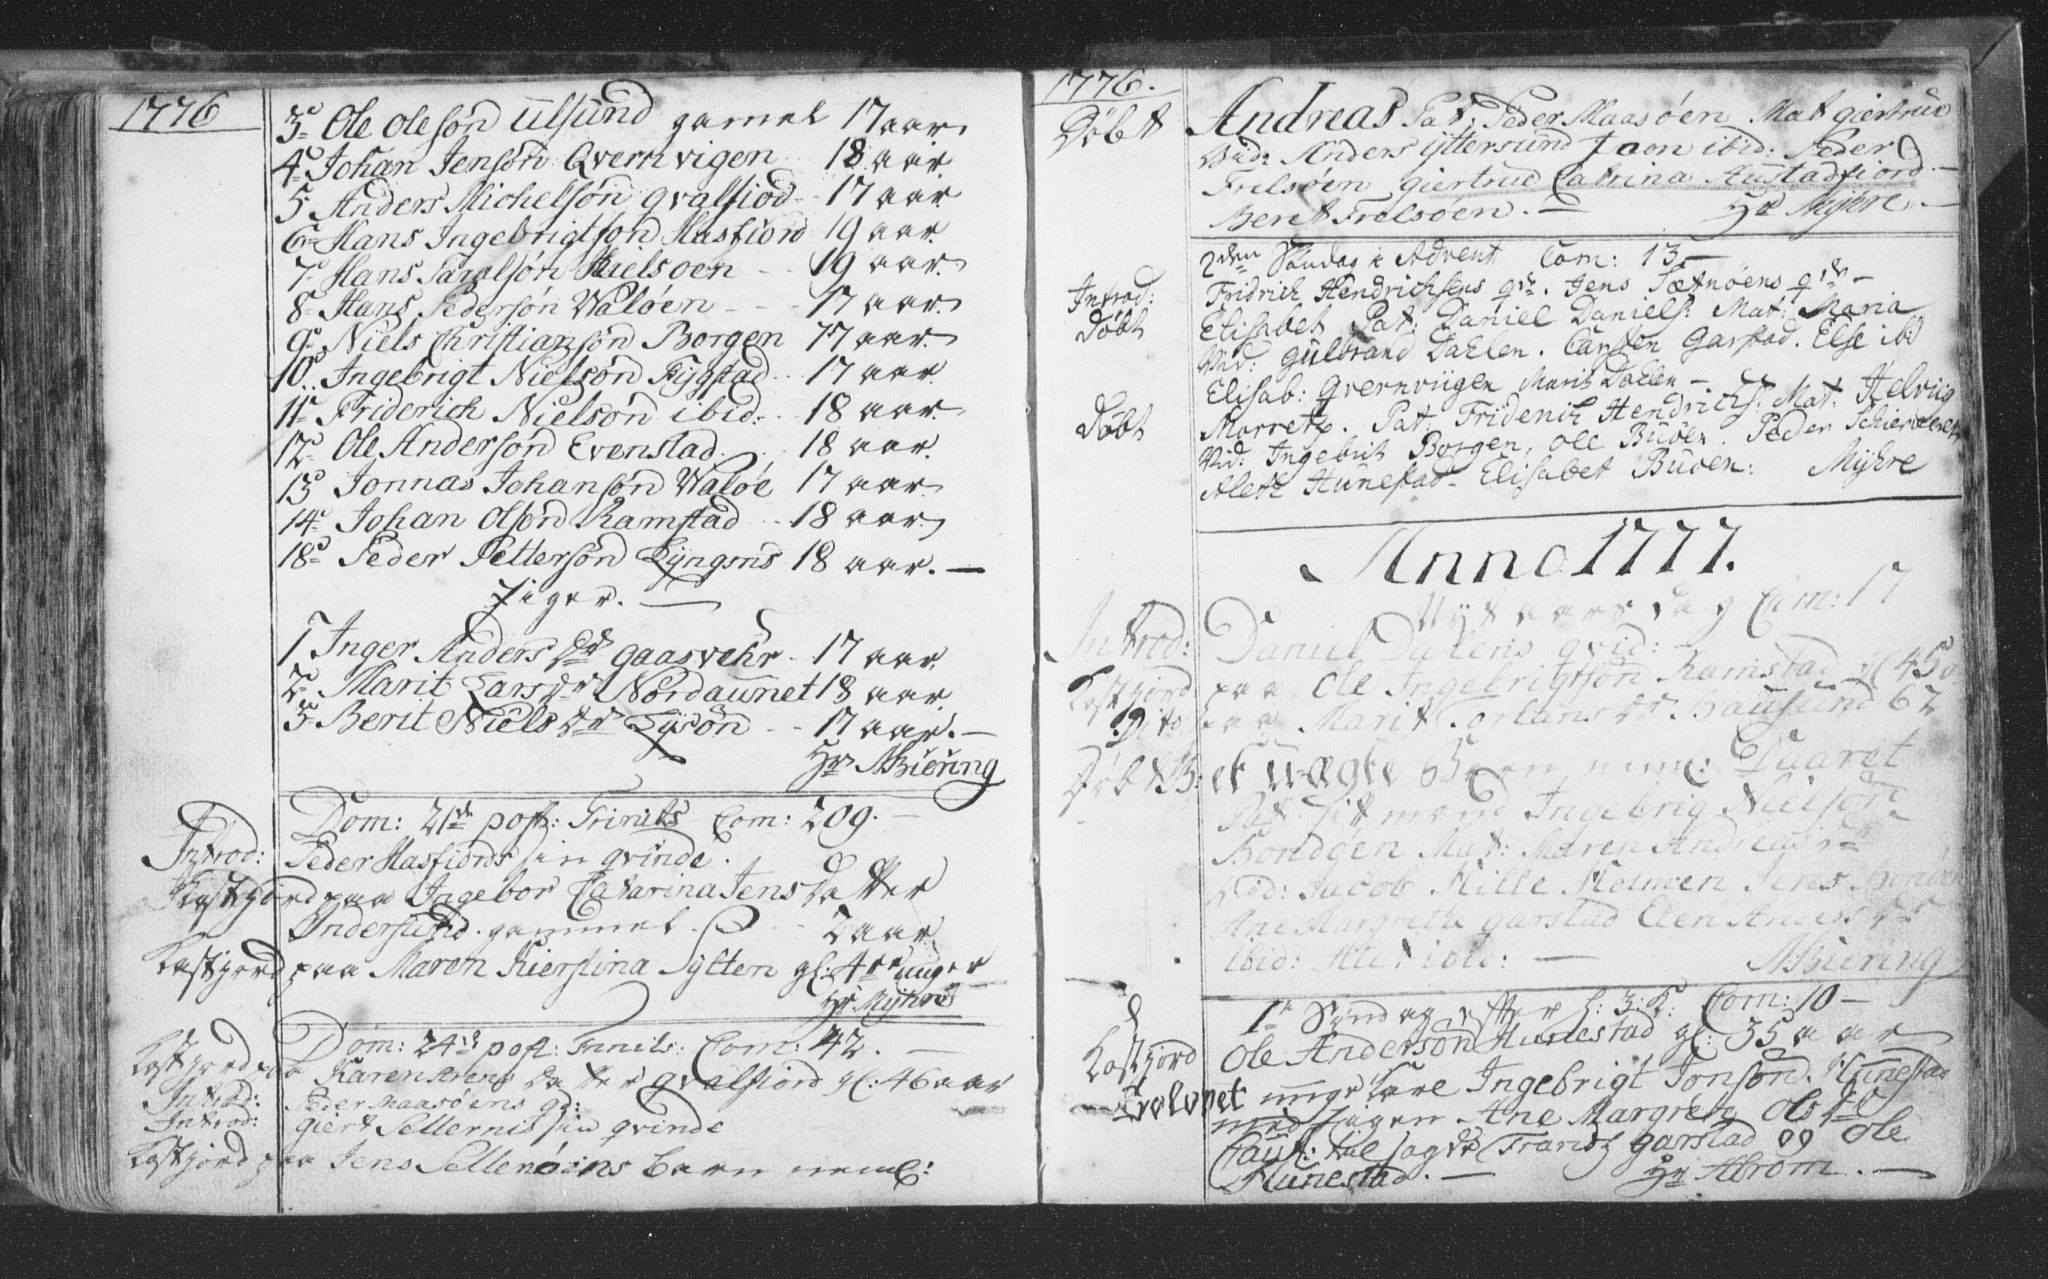 1776
3 Ole Olesøn Ulsund gamel 17 aar
4 Johan Jensøn Qvernvigen 18 aar
5 Anders Michelsøn qvalfiod 17 aar
6 Hans Ingebrigtsøn Hasfiord 19 aar
7 Hans 19 aar
8 Hans Pedersøn Valøen 17 aar
9 Niels Christiansøn Borgen 17 aar
10 Ingebrigt Nielsøn 17 aar
11 Friderich Nielsøn ibid: 18 aar
12 Ole Andersøn Evenstad 18 aar
13 Jonnas Johansøn Valøe 17 aar
14 Johan Olsøn Ramstad 18 aar
18 Peder Pettersøn Lyngsnis 18 aar. —
Piger. —
1 Inger Anders dr gaasvehr 17 aar
2 Marit Lars dr Nordaunet 18 aar
3 Berit Niels dr Lysøn 17 aar. —
Hr MBiering
Dom: 21de post: Trinits Com: 209. —
Introd: Peder Hasfiords sin qvinde.
Kastjord paa Ingebor Catarina Jens Datter
Undersund gammel 2 aar
Kastjord paa Maren Kierstina Sylten gl: 4re uuger
Hr Myhre
Dom: 24de post: Trinits: Com: 42. —
Kastjord paa Karen Arens datter qvalfiord gl: 46 aar
Introd: Peder Maasøens qd:
Introd: giert Sellernis sin qvinde
Kastjord paa Jens Sellenøens barn neml:
1776.
Døbt Andreas Pat: Peder Maasøen Mat giertrud
Vid: Anders yttersund Joon ibid: Peder
Frelsøen giertrud Catrina Austadfiord. —
Beret Frelsøen. — Hr Myhre. —
2den Søndag i Advent Com: 13 —
Introd: Fridrich Hendrichsens qde. Jens Sætnøens qde —
Døbt Elisabet Pat: Daniel Daniels: Mat: Maria
Vid: gulbrand Dahlen. Carsten Garstad. Else ibd
Elisab: Qvernviigen Marit Dahlen —.
Døbt Morretz. Pat: Friderich Hendrichs: Mat: Helvig
Vid: Ingebrit Borgen, Ole Buøen. Peder
Aleth Hunestad — Elisabet Buøen: Myhre
Anno 1777.
Nytaarsdag Com: 17
Introd: Daniel Dahlens qvid:
Kastjord paa Ole Ingebrigtsøn Ramstad gl 45
Dito paa Marit Torlans dr Hausund 62
Døbt B: et uægte Barn neml: Daaret
Pat: Pitt mand Ingebrig Nielsøn
Bondøen Mat: Maren Andreas dr
Vid: Jacob Hille Holmen Jens
Ane Margrethe garstad Elen Anders dr
ibid: Alet ibid: — MBiering
1te Søndag efter h: 3: K: Com: 10 —
Kastjord Ole Andersøn Hunestad gl: 35 aar
Trolovet unge Karl Ingebrigt Jonsøn Hunestad
med Pigen Ane Margreth Ols dr
Caut: tel sagde Frandtz garstad og Ole
Hunestad. — Hr Abrom. —